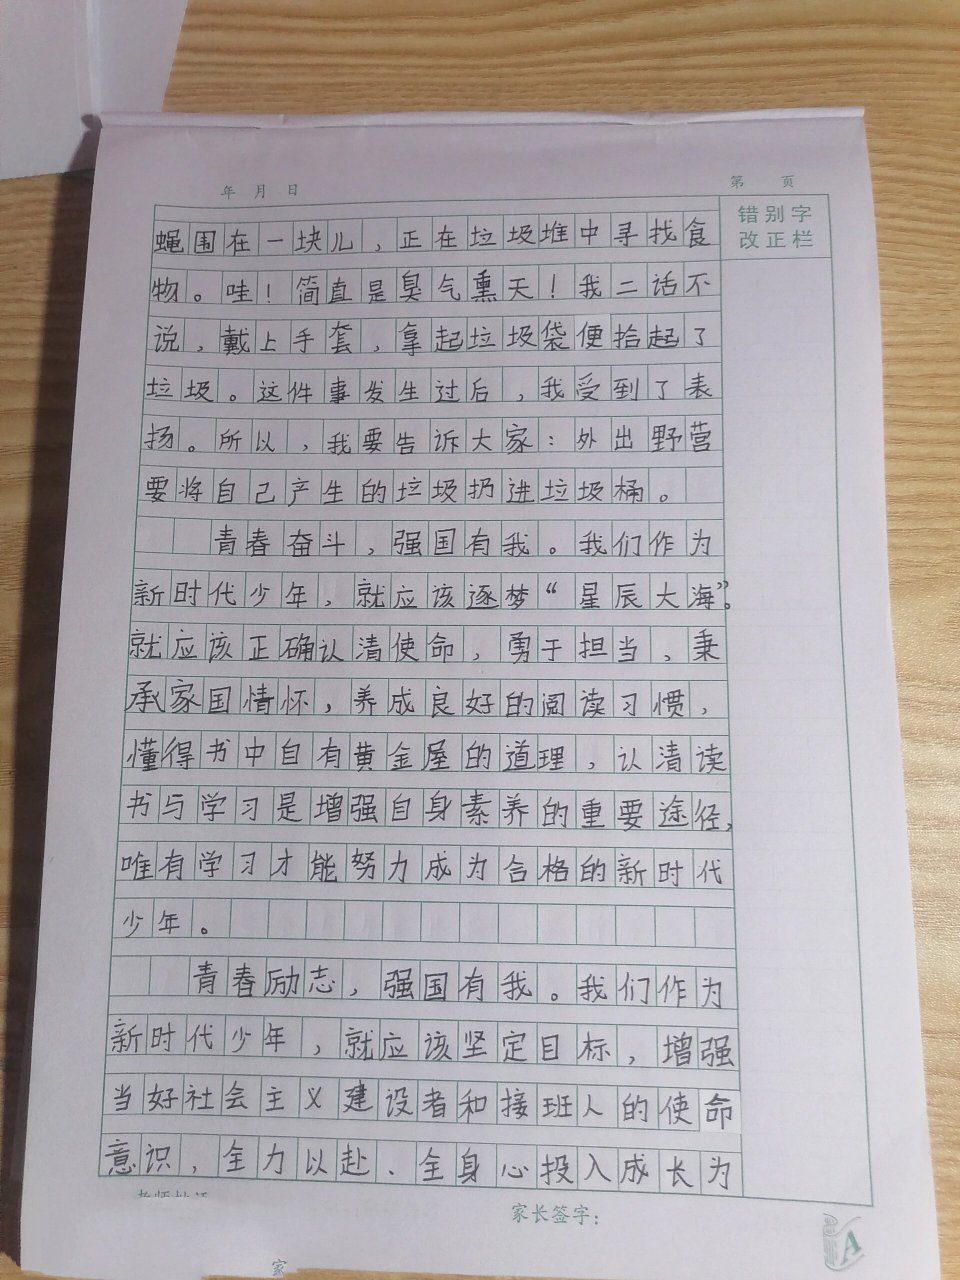 年 月 日
第 页
错别字
改正栏
蝇围在一块儿，正在垃圾堆中寻找食
物。哇！简直是臭气熏天！我二话不
说，戴上手套，拿起垃圾袋便拾起了
垃圾。这件事发生过后，我受到了表
扬。所以，我要告诉大家：外出野营
要将自己产生的垃圾扔进垃圾桶。
青春奋斗，强国有我。我们作为
新时代少年，就应该逐梦“星辰大海”。
就应该正确认清使命，勇于担当，秉
承家国情怀，养成良好的阅读习惯，
懂得书中自有黄金屋的道理，认清读
书与学习是增强自身素养的重要途径，
唯有学习才能努力成为合格的新时代
少年。
青春励志，强国有我。我们作为
新时代少年，就应该坚定目标，增强
当好社会主义建设者和接班人的使命
意识，全力以赴、全身心投入成长为
家长签字：
家
A